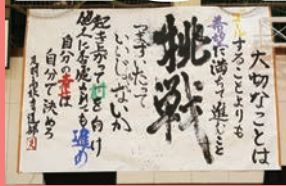 大切なことは
することよりも
希望に満ちて進むこと
挑戦
つまずいたって
いいじゃないか
起き上がって前を向け
他人に否定されても進め
自分の
は
自分で決めろ
書道部